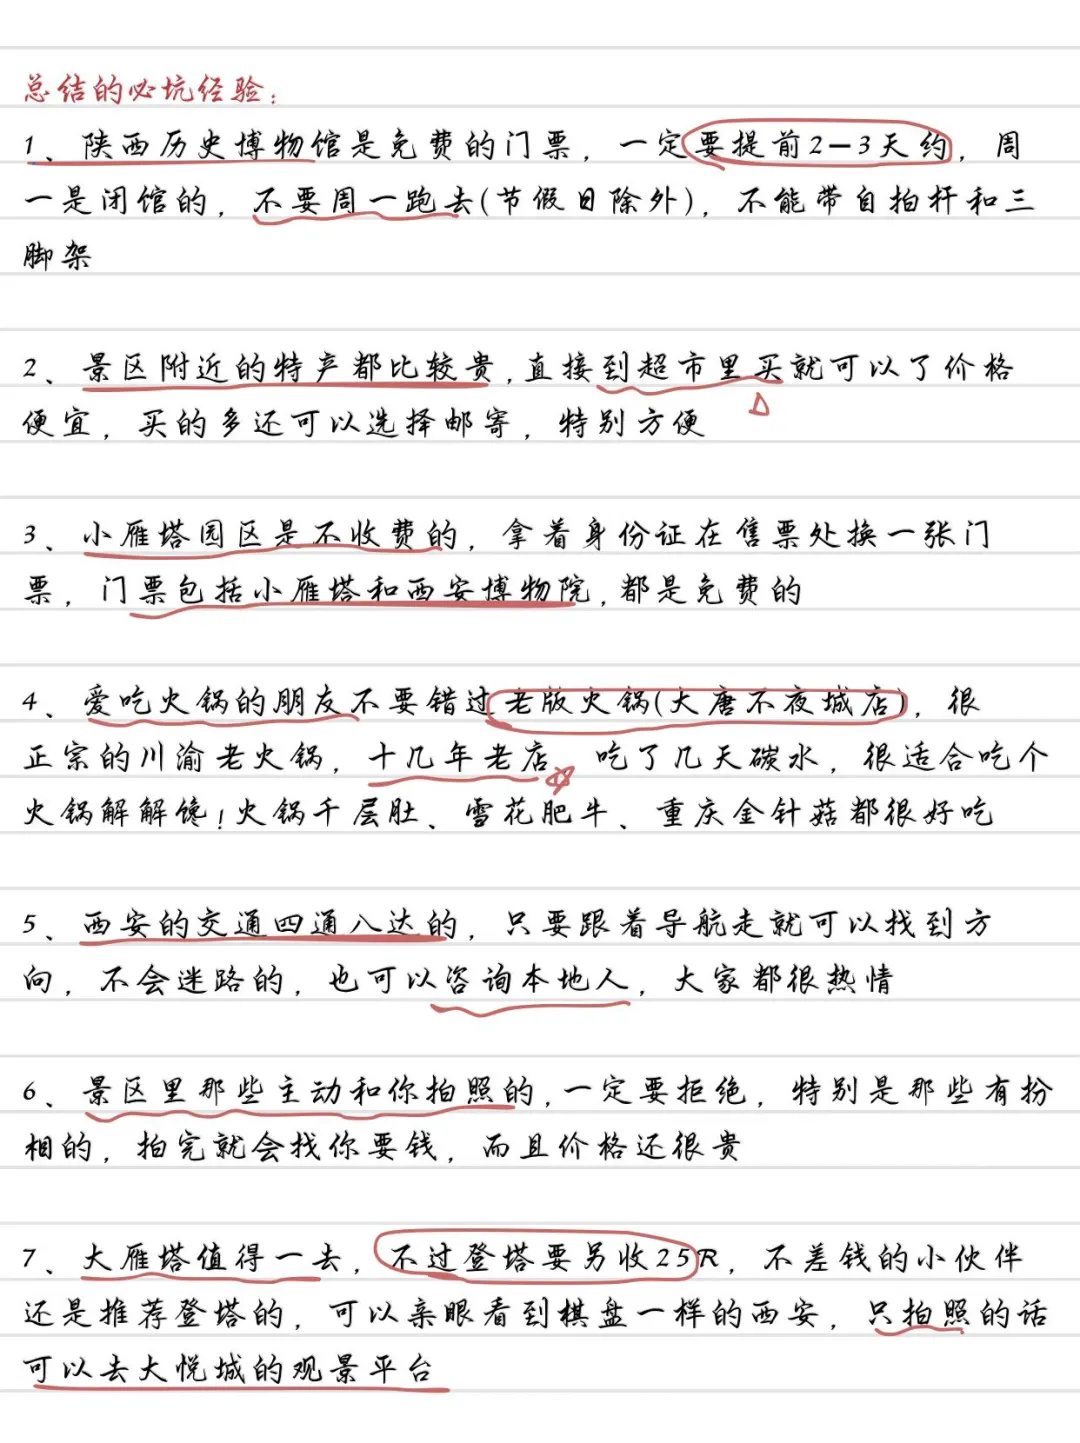 总结的必坑经验：
1、陕西历史博物馆是免费的门票，一定要提前2-3天约，周
一是闭馆的，不要周一跑去(节假日除外)，不能带自拍杆和三
脚架
2、景区附近的特产都比较贵，直接到超市里买就可以了价格
便宜，买的多还可以选择邮寄，特别方便
3、小雁塔园区是不收费的，拿着身份证在售票处换一张门
票，门票包括小雁塔和西安博物院，都是免费的
4、爱吃火锅的朋友不要错过老版火锅(大唐不夜城店)，很
正宗的川渝老火锅，十几年老店 吃了几天碳水，很适合吃个
火锅解解馋！火锅千层肚、雪花肥牛、重庆金针菇都很好吃
5、西安的交通四通八达的，只要跟着导航走就可以找到方
向，不会迷路的，也可以咨询本地人，大家都很热情
6、景区里那些主动和你拍照的，一定要拒绝，特别是那些有扮
相的，拍完就会找你要钱，而且价格还很贵
7、大雁塔值得一去，不过登塔要另收25R，不差钱的小伙伴
还是推荐登塔的，可以亲眼看到棋盘一样的西安，只拍照的话
可以去大悦城的观景平台